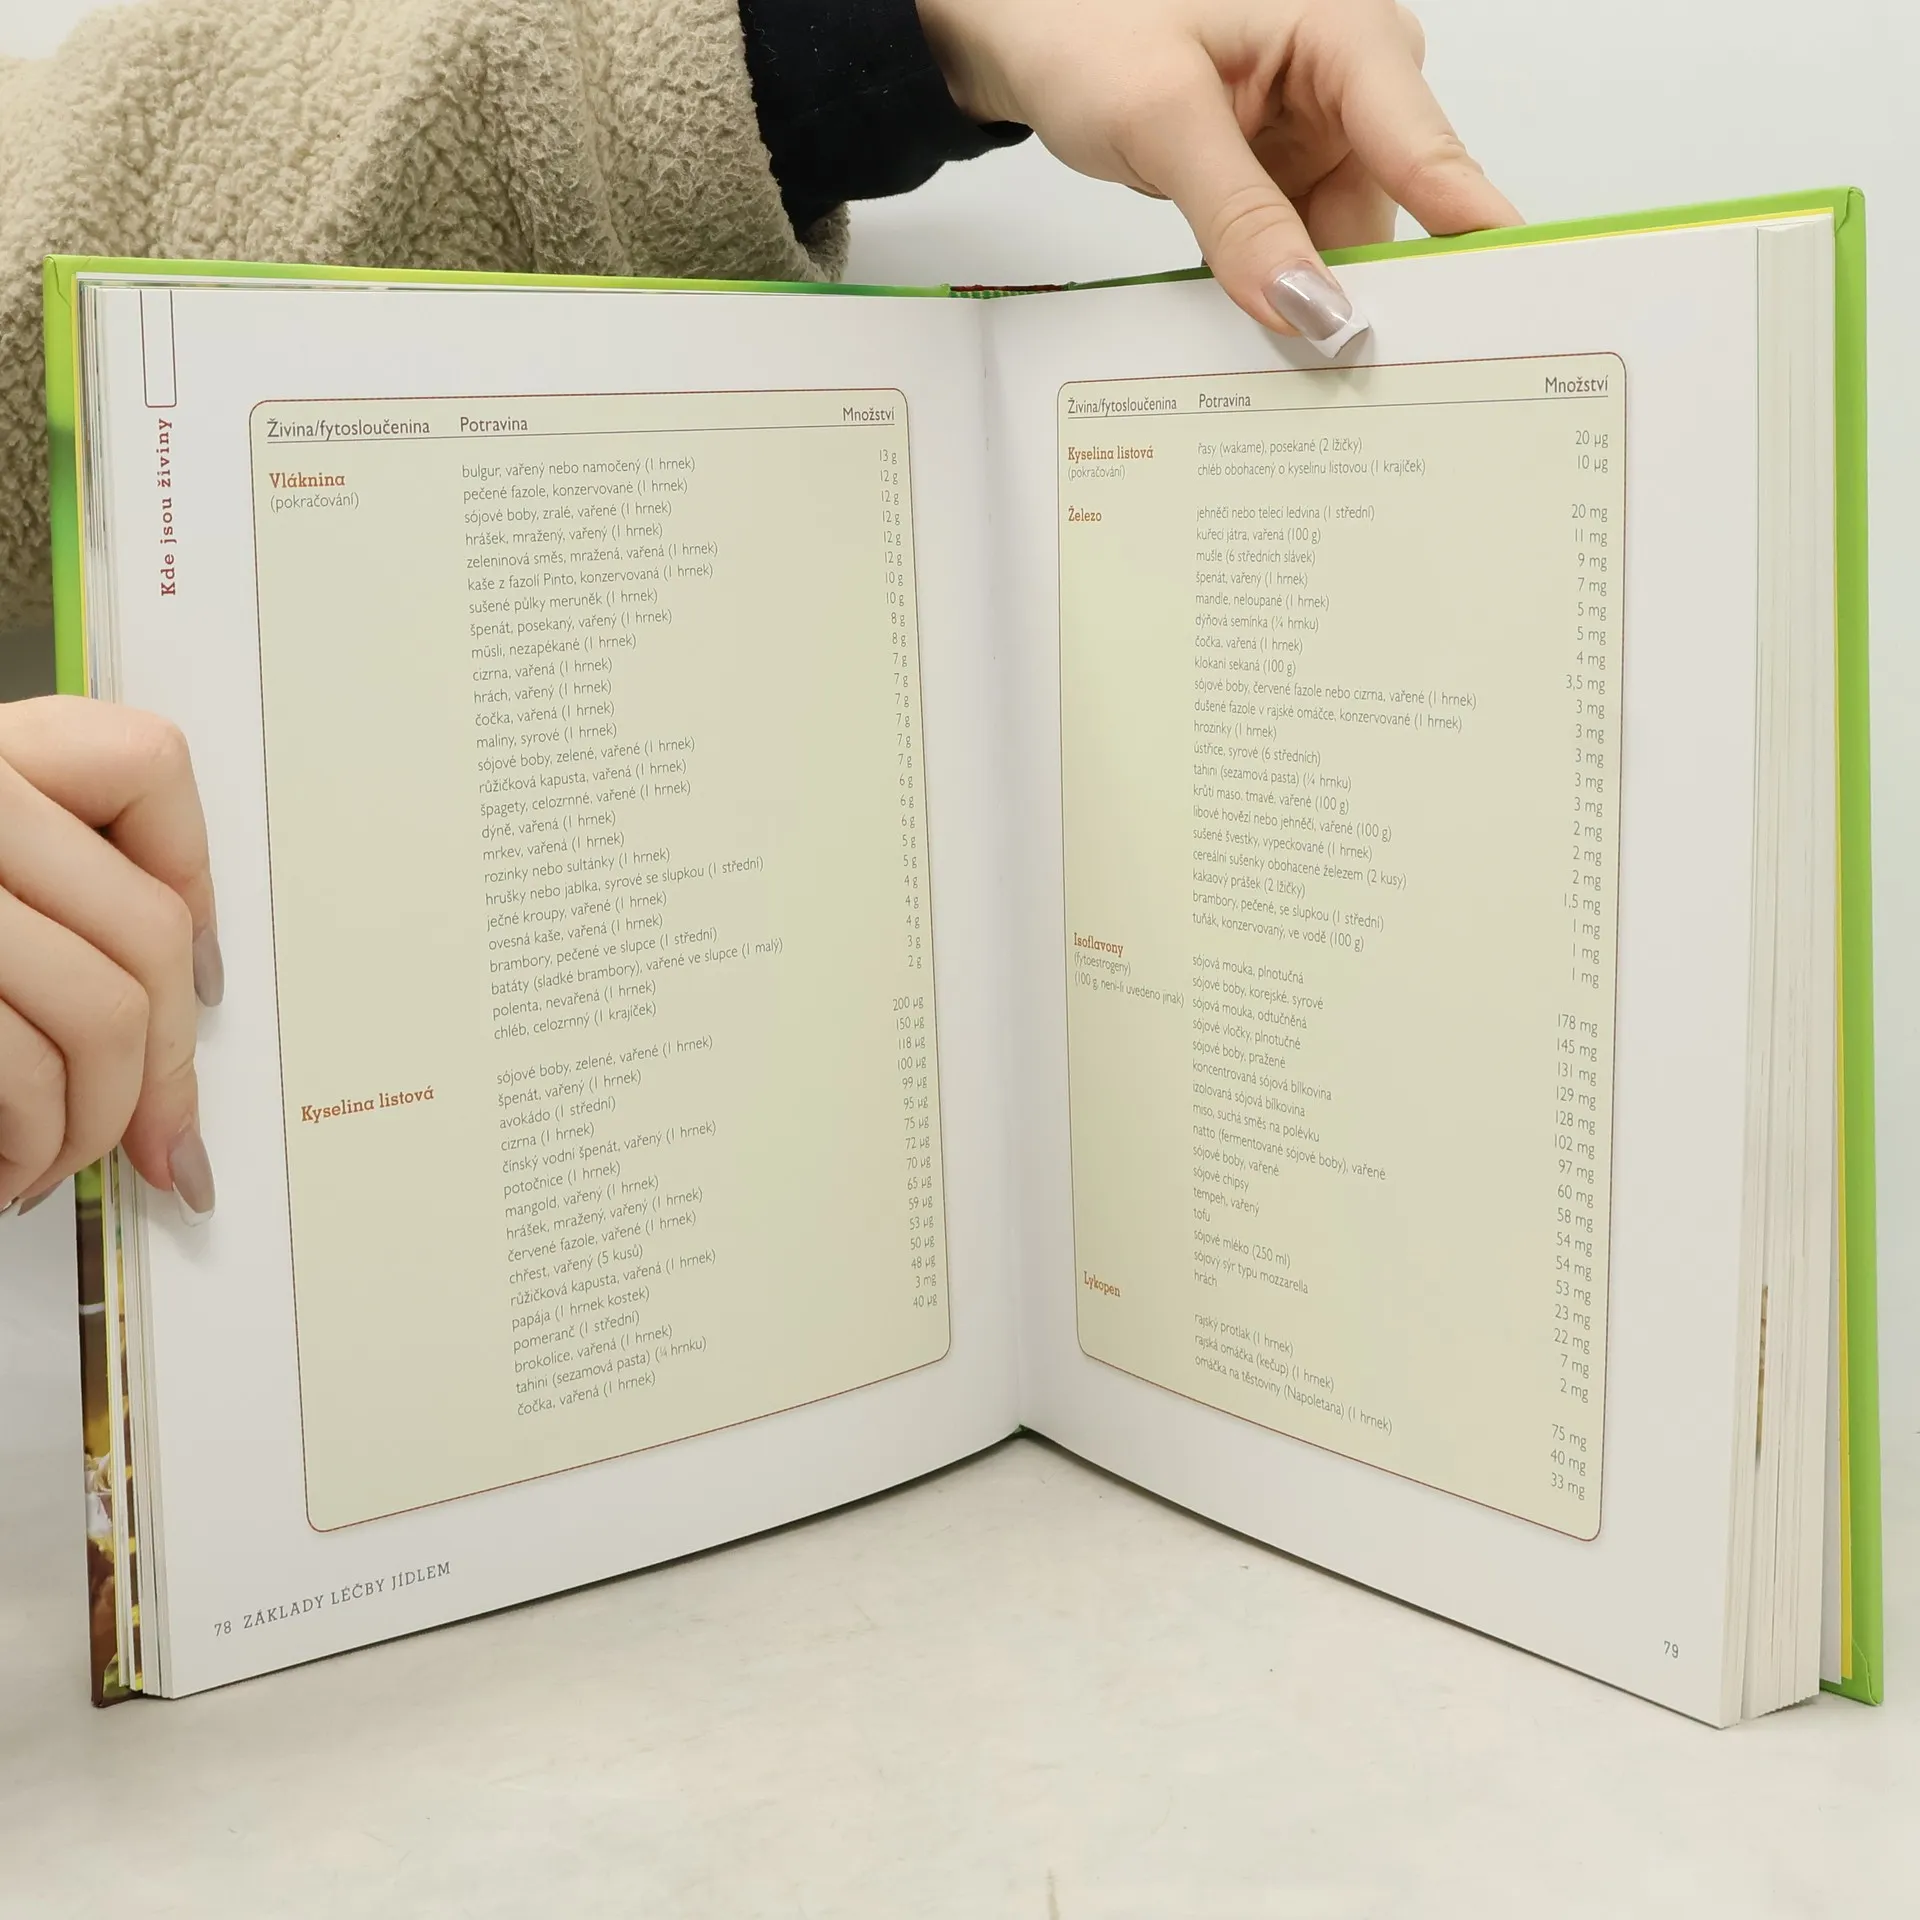 Kde jsou živiny
Živina/fytosloučenina Potravina Množství
Vláknina
(pokračování)
bulgur, vařený nebo namočený (1 hrnek) 13 g
pečené fazole, konzervované (1 hrnek) 12 g
sójové boby, zralé, vařené (1 hrnek) 12 g
hrášek, mražený, vařený (1 hrnek) 12 g
zeleninová směs, mražená, vařená (1 hrnek) 12 g
kaše z fazolí Pinto, konzervovaná (1 hrnek) 12 g
sušené půlky meruněk (1 hrnek) 10 g
špenát, posekaný, vařený (1 hrnek) 10 g
müsli, nezapékané (1 hrnek) 8 g
cizrna, vařená (1 hrnek) 8 g
hrách, vařený (1 hrnek) 7 g
čočka, vařená (1 hrnek) 7 g
maliny, syrové (1 hrnek) 7 g
sójové boby, zelené, vařené (1 hrnek) 7 g
růžičková kapusta, vařená (1 hrnek) 7 g
špagety, celozrnné, vařené (1 hrnek) 7 g
dýně, vařená (1 hrnek) 6 g
mrkev, vařená (1 hrnek) 6 g
rozinky nebo sultánky (1 hrnek) 6 g
hrušky nebo jablka, syrové se slupkou (1 střední) 5 g
ječné kroupy, vařené (1 hrnek) 5 g
ovesná kaše, vařená (1 hrnek) 4 g
brambory, pečené ve slupce (1 střední) 4 g
batáty (sladké brambory), vařené ve slupce (1 malý) 4 g
polenta, nevařená (1 hrnek) 3 g
chléb, celozrnný (1 krajíček) 2 g
Kyselina listová
sójové boby, zelené, vařené (1 hrnek) 200 µg
špenát, vařený (1 hrnek) 150 µg
avokádo (1 střední) 118 µg
cizrna (1 hrnek) 100 µg
čínský vodní špenát, vařený (1 hrnek) 99 µg
potočnice (1 hrnek) 95 µg
mangold, vařený (1 hrnek) 75 µg
hrášek, mražený, vařený (1 hrnek) 72 µg
červené fazole, vařené (1 hrnek) 70 µg
chřest, vařený (5 kusů) 65 µg
růžičková kapusta, vařená (1 hrnek) 59 µg
papája (1 hrnek kostek) 53 µg
pomeranč (1 střední) 50 µg
brokolice, vařená (1 hrnek) 48 µg
tahini (sezamová pasta) (¼ hrnku) 3 mg
čočka, vařená (1 hrnek) 40 µg
78 ZÁKLADY LÉČBY JÍDLEM
Živina/fytosloučenina Potravina Množství
Kyselina listová
(pokračování)
řasy (wakame), posekané (2 lžičky) 20 µg
chléb obohacený o kyselinu listovou (1 krajíček) 10 µg
Železo
jehněčí nebo telecí ledvina (1 střední) 20 mg
kuřecí játra, vařená (100 g) 11 mg
mušle (6 středních slávek) 9 mg
špenát, vařený (1 hrnek) 7 mg
mandle, neloupané (1 hrnek) 5 mg
dýňová semínka (¼ hrnku) 5 mg
čočka, vařená (1 hrnek) 4 mg
klokaní sekaná (100 g) 3,5 mg
sójové boby, červené fazole nebo cizrna, vařené (1 hrnek) 3 mg
dušené fazole v rajské omáčce, konzervované (1 hrnek) 3 mg
hrozinky (1 hrnek) 3 mg
ústřice, syrové (6 středních) 3 mg
tahini (sezamová pasta) (¼ hrnku) 3 mg
krůtí maso, tmavé, vařené (100 g) 2 mg
libové hovězí nebo jehněčí, vařené (100 g) 2 mg
sušené švestky, vypeckované (1 hrnek) 2 mg
cereální sušenky obohacené železem (2 kusy) 1,5 mg
kakaový prášek (2 lžičky) 1 mg
brambory, pečené, se slupkou (1 střední) 1 mg
tuňák, konzervovaný, ve vodě (100 g) 1 mg
Isoflavony
(fytoestrogeny)
(100 g, není-li uvedeno jinak)
sójová mouka, plnotučná 178 mg
sójové boby, korejské, syrové 145 mg
sójová mouka, odtučněná 131 mg
sójové vločky, plnotučné 129 mg
sójové boby, pražené 128 mg
koncentrovaná sójová bílkovina 102 mg
izolovaná sójová bílkovina 97 mg
miso, suchá směs na polévku 60 mg
natto (fermentované sójové boby), vařené 58 mg
sójové boby, vařené 54 mg
sójové chipsy 54 mg
tempeh, vařený 53 mg
tofu 23 mg
sójové mléko (250 ml) 22 mg
sójový sýr typu mozzarella 7 mg
hrách 2 mg
Lykopen
rajský protlak (1 hrnek) 75 mg
rajská omáčka (kečup) (1 hrnek) 40 mg
omáčka na těstoviny (Napoletana) (1 hrnek) 33 mg
79